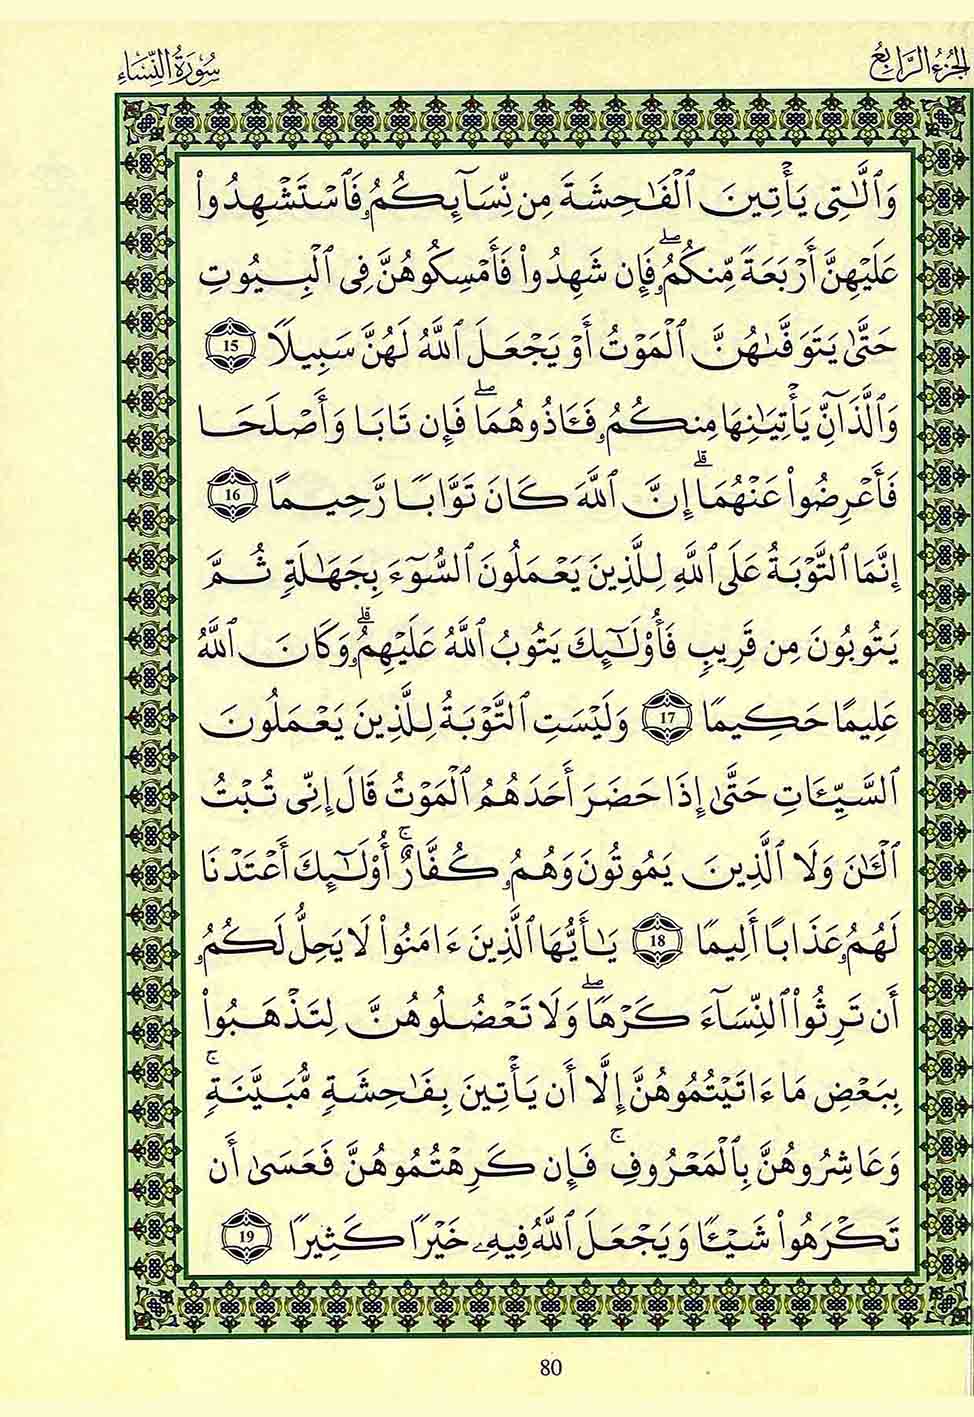 الجُزْءُ الرَّابِعُ
سُورَةُ النِّسَاءِ
وَٱلَّٰتِى يَأۡتِينَ ٱلۡفَٰحِشَةَ مِن نِّسَآئِكُمُۥ فَٱسۡتَشۡهِدُواْ
عَلَيۡهِنَّ أَرۡبَعَةٗ مِّنكُمُۥۖ فَإِن شَهِدُواْ فَأَمۡسِكُوهُنَّ فِى ٱلۡبِيُوتِ
حَتَّىٰ يَتَوَفَّىٰهُنَّ ٱلۡمَوۡتُ أَوۡ يَجۡعَلَ ٱللَّهُ لَهُنَّ سَبِيلٗا 15
وَٱلَّذَآنِّ يَأۡتِيَٰنِهَا مِنكُمُۥ فَـَٔاذُوهُمَاۖ فَإِن تَابَا وَأَصۡلَحَا
فَأَعۡرِضُواْ عَنۡهُمَاۗ إِنَّ ٱللَّهَ كَانَ تَوَّابٗا رَّحِيمًا 16
إِنَّمَا ٱلتَّوۡبَةُ عَلَى ٱللَّهِ لِلَّذِينَ يَعۡمَلُونَ ٱلسُّوٓءَ بِجَهَٰلَةٖ ثُمَّ
يَتُوبُونَ مِن قَرِيبٖ فَأُوْلَٰٓئِكَ يَتُوبُ ٱللَّهُ عَلَيۡهِمُۥۗ وَكَانَ ٱللَّهُ
عَلِيمًا حَكِيمٗا 17 وَلَيۡسَتِ ٱلتَّوۡبَةُ لِلَّذِينَ يَعۡمَلُونَ
ٱلسَّيِّـَٔاتِ حَتَّىٰ إِذَا حَضَرَ أَحَدَهُمُ ٱلۡمَوۡتُ قَالَ إِنِّى تُبۡتُ
ٱلۡـَٰٔنَ وَلَا ٱلَّذِينَ يَمُوتُونَ وَهُمُۥ كُفَّارٌۚ أُوْلَٰٓئِكَ أَعۡتَدۡنَا
لَهُمُۥ عَذَابًا أَلِيمٗا 18 يَٰأَيُّهَا ٱلَّذِينَ ءَامَنُواْ لَا يَحِلُّ لَكُمُۥ
أَن تَرِثُواْ ٱلنِّسَآءَ كَرۡهٗاۖ وَلَا تَعۡضُلُوهُنَّ لِتَذۡهَبُواْ
بِبَعۡضِ مَا ءَاتَيۡتُمُوهُنَّ إِلَّا أَن يَأۡتِينَ بِفَٰحِشَةٖ مُّبَيَّنَةٖۚ
وَعَاشِرُوهُنَّ بِٱلۡمَعۡرُوفِۚ فَإِن كَرِهۡتُمُوهُنَّ فَعَسَىٰ أَن
تَكۡرَهُواْ شَيۡـٔٗا وَيَجۡعَلَ ٱللَّهُ فِيهِۦ خَيۡرٗا كَثِيرٗا 19
80